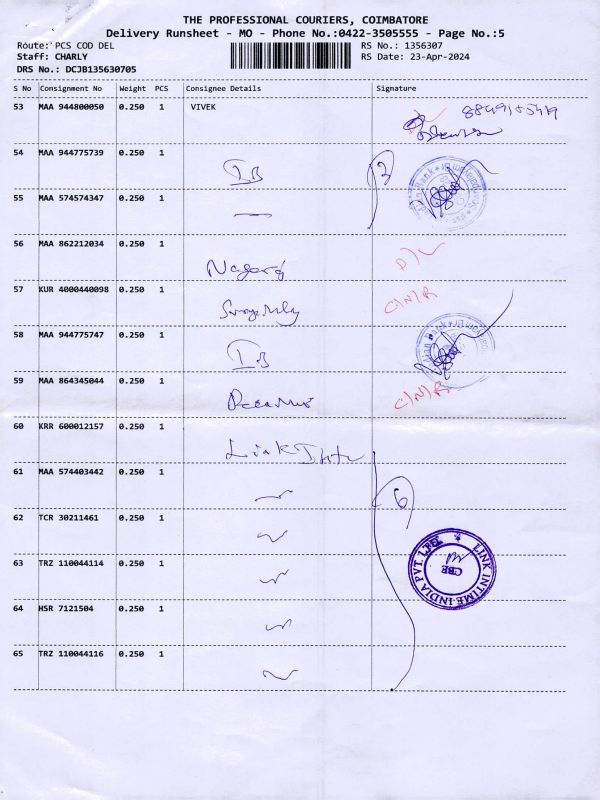 THE PROFESSIONAL COURIERS, COIMBATORE
Delivery Runsheet - MO - Phone No.:0422-3505555 - Page No.:5
Route: PCS COD DEL
Staff: CHARLY
DRS No.: DCJB135630705
RS No.: 1356307
RS Date: 23-Apr-2024
S No Consignment No Weight PCS Consignee Details Signature
53 MAA 944800050 0.250 1 VIVEK
54 MAA 944775739 0.250 1 IB 2
55 MAA 574574347 0.250 1
56 MAA 862212034 0.250 1 D/L
57 KUR 4000440098 0.250 1 C/N/R
58 MAA 944775747 0.250 1 IB
59 MAA 864345044 0.250 1 C/N/R
60 KRR 600012157 0.250 1 Link
61 MAA 574403442 0.250 1 6
62 TCR 30211461 0.250 1
63 TRZ 110044114 0.250 1
LINK INTIME INDIA PVT. LTD.
CBE
64 HSR 7121504 0.250 1
65 TRZ 110044116 0.250 1